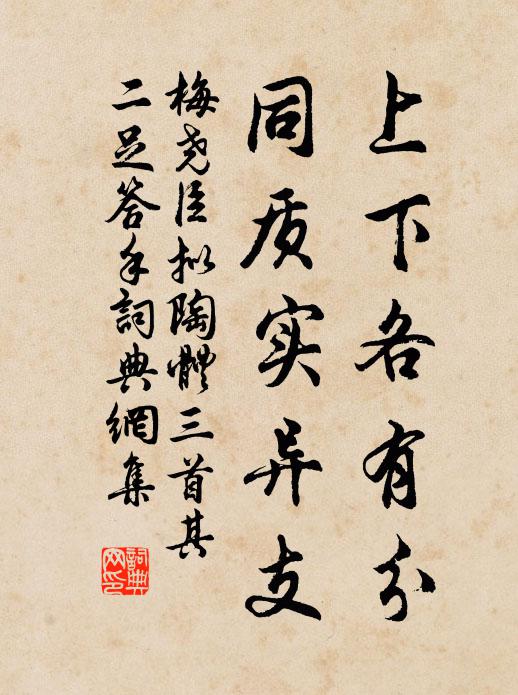 上下各有分
同质实异支
梅尧臣拟陶體三首其
二足答手詞典網集
詞典网印